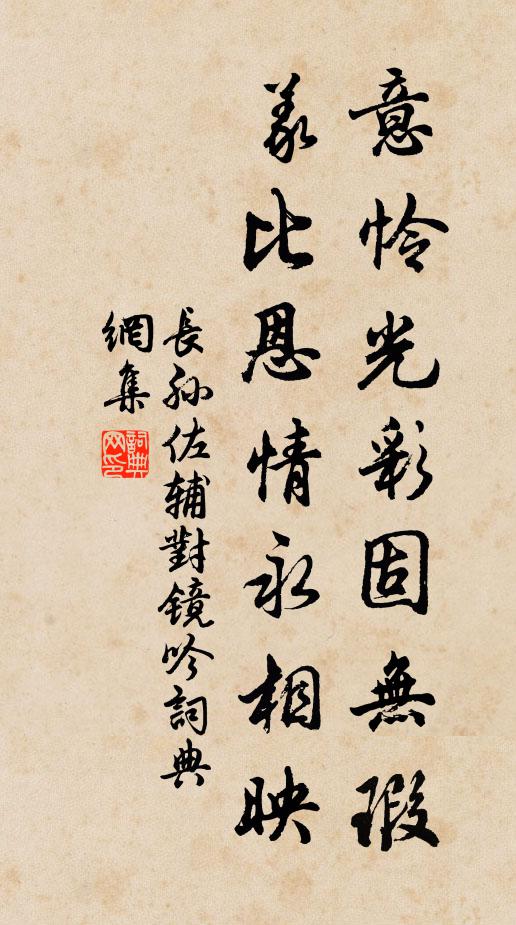 意怜光彩固無瑕
義比恩情永相映
長孫佐辅對鏡吟詞典
網集
詞典
网印